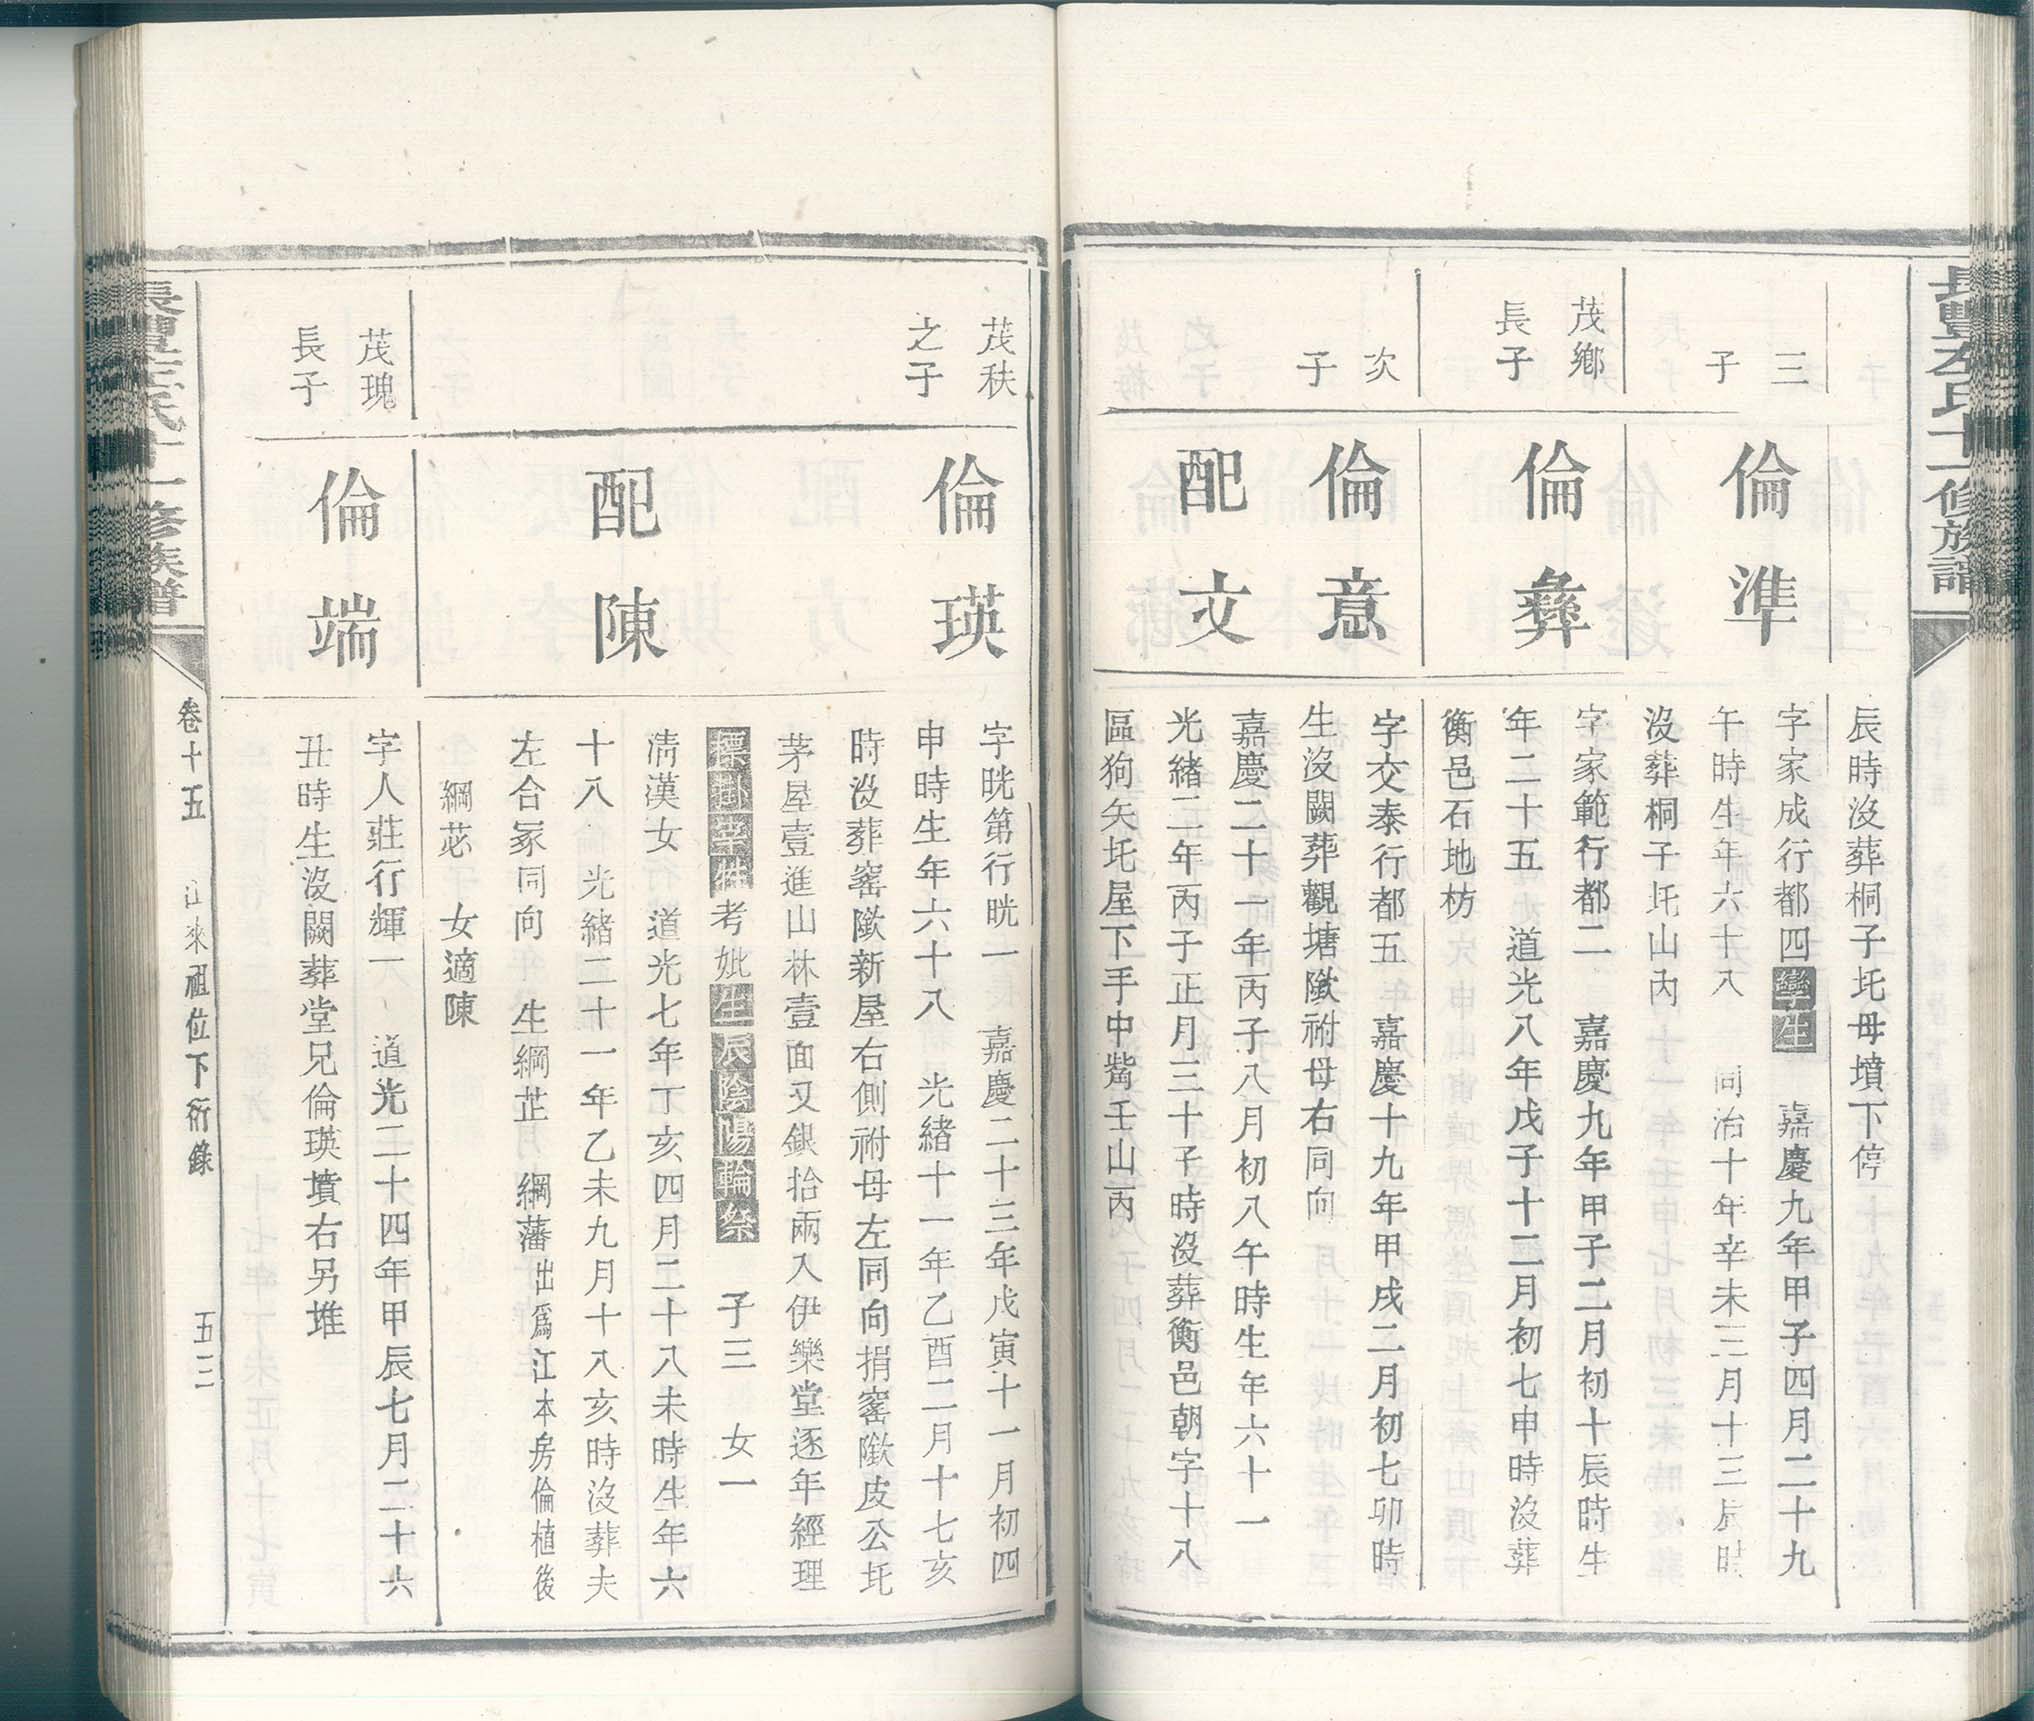 長豐左氏十一修族譜
辰時沒葬桐子圫母墳下停
三
子
倫準
字家成行都四孿生 嘉慶九年甲子四月二十九
午時生年六十八 同治十年辛未三月十三辰時
沒葬桐子圫山內
茂鄉
長子
倫彝
字家範行都二 嘉慶九年甲子二月初十辰時生
年二十五 道光八年戊子十二月初七申時沒葬
衡邑石地枋
次
子
倫意
字交泰行都五 嘉慶十九年甲戌二月初七卯時
生沒闕葬觀塘墩祔母右同向
配文
嘉慶二十一年丙子八月初八午時生年六十一
光緒二年丙子正月三十子時沒葬衡邑朝字十八
區狗矢圫屋下手中嘴壬山丙
茂秩
之子
倫瑛
字晄第行晄一 嘉慶二十三年戊寅十一月初四
申時生年六十八 光緒十一年乙酉二月十七亥
時沒葬窰墩新屋右側祔母左同向捐窰墩皮公圫
茅屋壹進山林壹面又銀拾兩入伊樂堂逐年經理
標掛坐位考妣生辰陰陽輪祭 子三 女一
配陳
清漢女 道光七年丁亥四月二十八未時生年六
十八 光緒二十一年乙未九月十八亥時沒葬夫
左合冢同向 生綱芷 綱藩出爲江本房倫植後
綱苾 女適陳
茂瑰
長子
倫端
字人莊行輝一 道光二十四年甲辰七月二十六
丑時生沒闕葬堂兄倫瑛墳右另堆
長豐左氏十一修族譜
卷十五 江來祖位下衍錄 五三